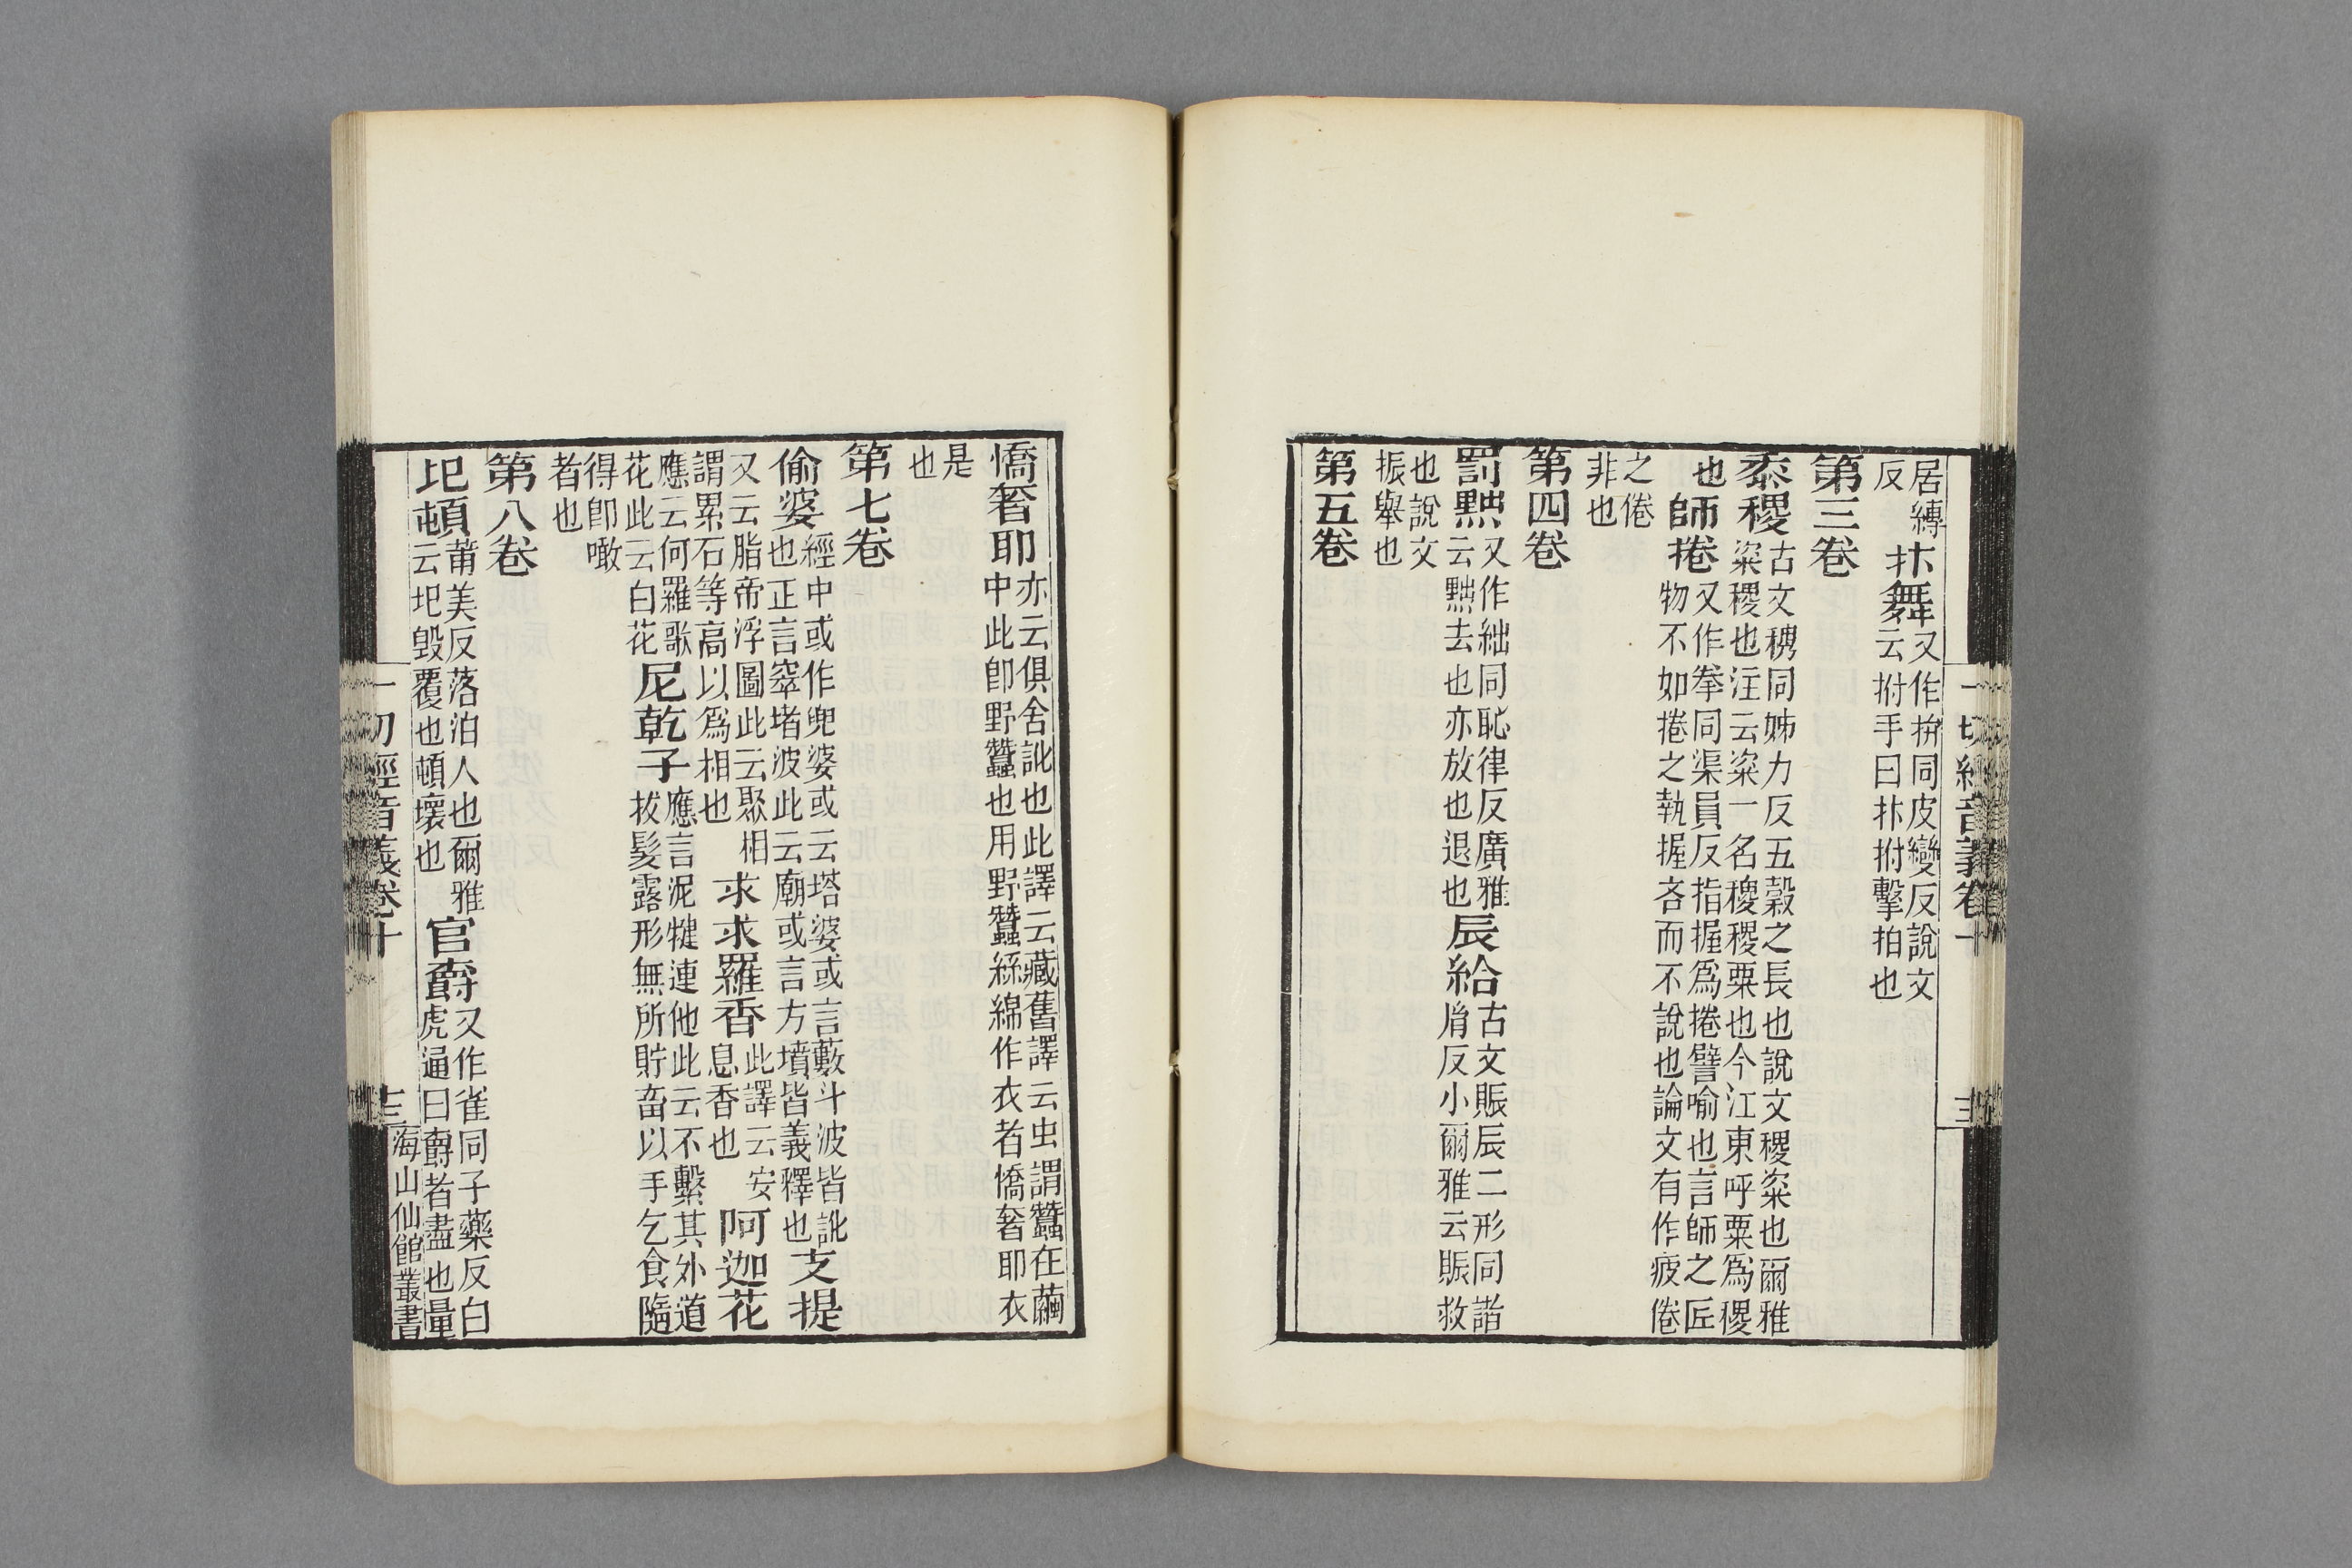 居縳
反
抃舞
又作拚同皮變反說文
云拊手曰抃拊擊拍也
第三卷
黍稷
古文稷同姊力反五穀之長也說文稷粢也爾雅
粢稷也注云粢一名稷稷粟也今江東呼粟爲稷
也
師捲
又作拳同渠員反指握爲捲譬喻也言師之匠
物不如捲之執握吝而不說也論文有作疲倦
之倦
非也
第四卷
罰黜
又作絀同恥律反廣雅
云黜去也亦放也退也
辰給
古文賑辰二形同諧
脣反小爾雅云賑救
也說文
振舉也
第五卷
一切經音義卷十
憍奢耶
亦云俱舍訛也此譯云藏舊譯云虫謂蠶在繭
中此卽野蠶也用野蠶絲綿作衣者憍奢耶衣
是
也
第七卷
偷婆
經中或作兜婆或云塔婆或言藪斗波皆訛
也正言窣堵波此云廟或言方墳皆義釋也
支提
又云脂帝浮圖此云聚相
謂累石等高以爲相也
求求羅香
此譯云安
息香也
阿迦花
應云何羅歌
花此云白花
尼乾子
應言泥揵連他此云不繫其外道
拔髮露形無所貯畜以手乞食隨
得卽噉
者也
第八卷
圯頓
莆美反落泊人也爾雅
云圯毀覆也頓壞也
官爵
又作雀同子藥反白
虎通曰爵者盡也量
一切經音義卷十
海山仙館叢書